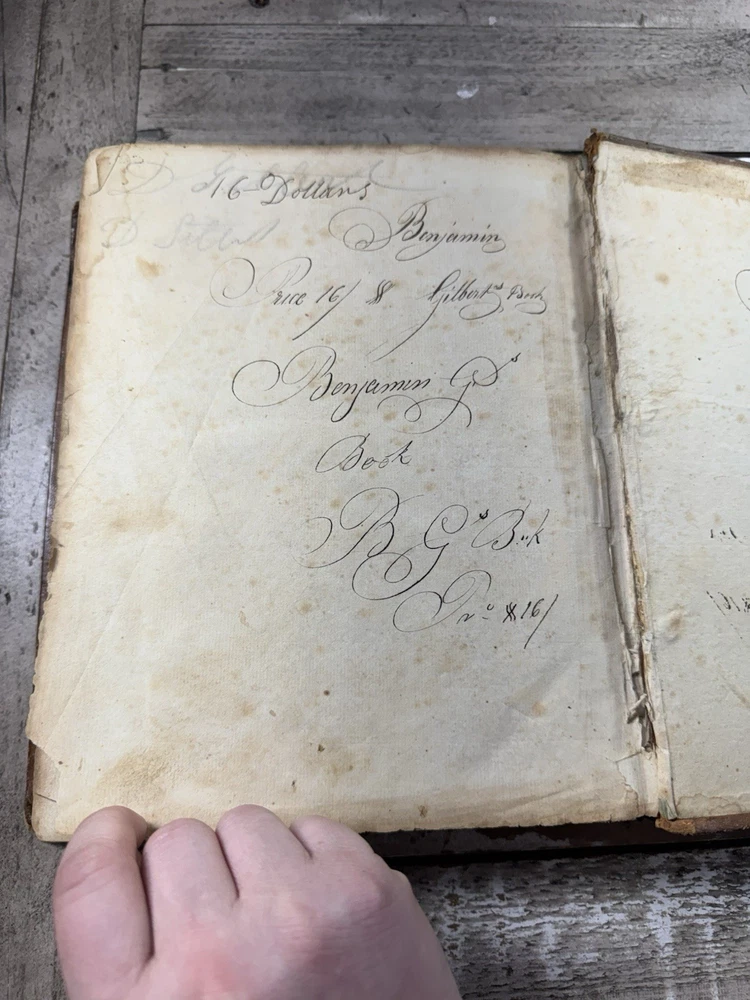 16 Dollars
Benjamin
Price 16/ $ Gilberts Book
Benjamin Gs
Book
B Gs Book
Pro $16/